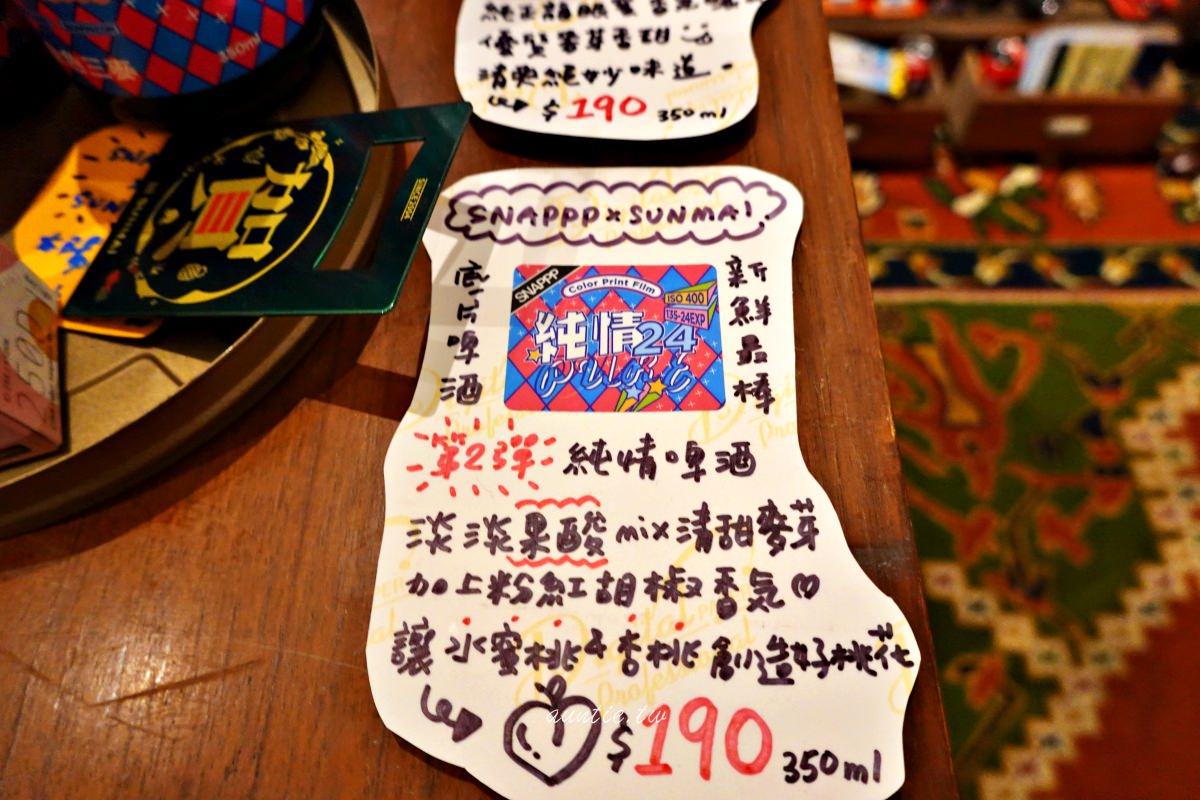 優質麥芽香甜
清爽絕妙味道。
$190 350ml
SNAPPP x SUNMAI
底片啤酒
新鮮最棒
SNAPPP
Color Print Film
ISO 400
135-24EXP
純情24
PURE
第23彈
純情啤酒
淡淡果酸mix清甜麥芽
加上粉紅胡椒香氣♡
讓水蜜桃&杏桃創造好桃花
$190 350ml
auntie.tw
SINCE 2004
SUNMAI